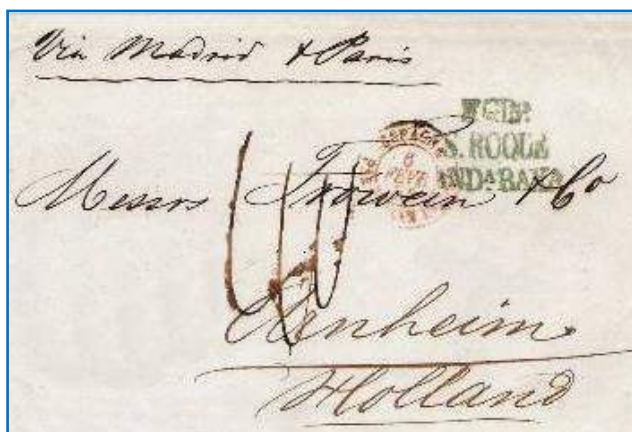 Via Madrid & Paris
S. ROQUE
ANDA BAXA
6
Messrs Trowein & Co
Arnheim
Holland